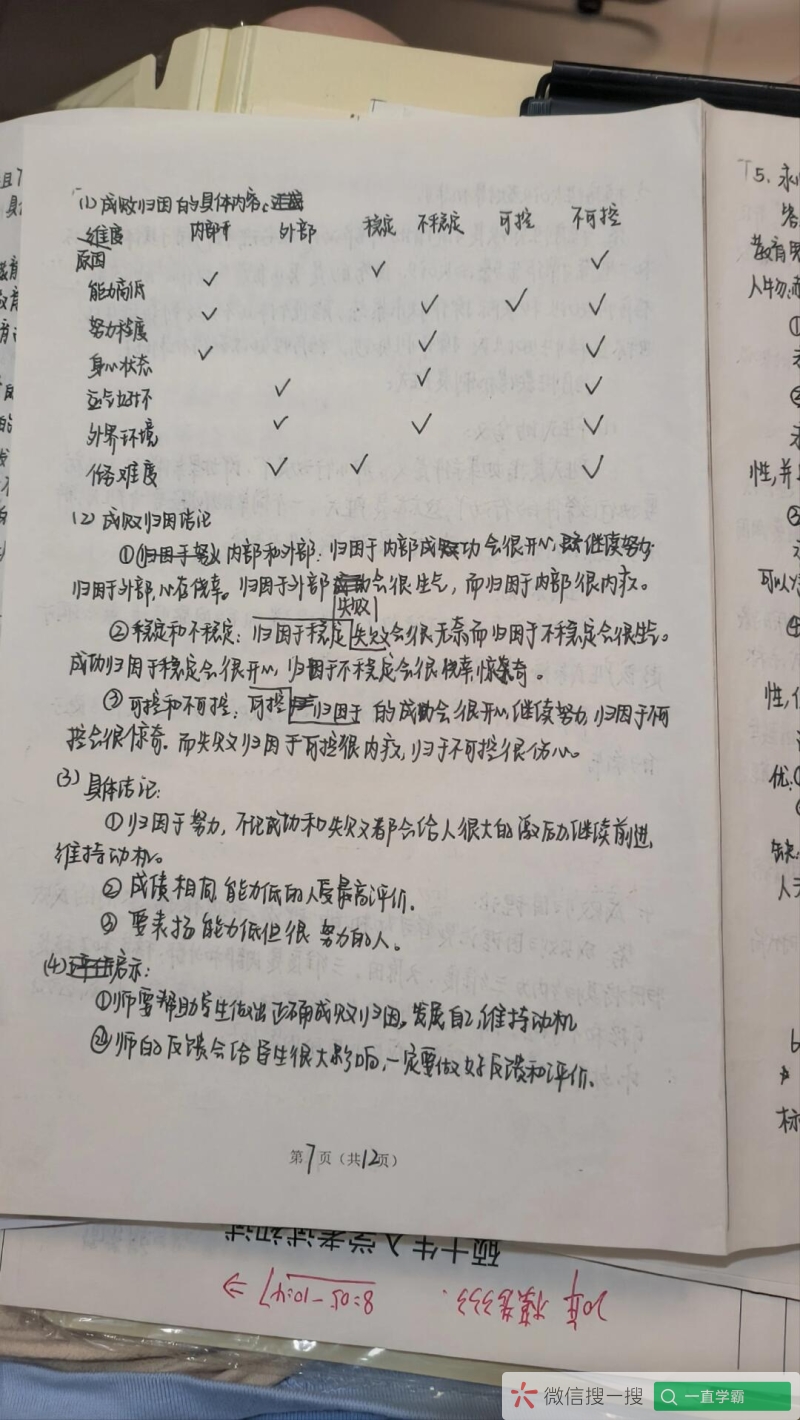 (1) 成败归因的具体内容。
维度 内部 外部 稳定 不稳定 可控 不可控
原因
能力高低 ✓ ✓ ✓
努力程度 ✓ ✓ ✓ ✓
身心状态 ✓ ✓ ✓
运气好坏 ✓ ✓ ✓
外界环境 ✓ ✓ ✓
任务难度 ✓ ✓ ✓
(2) 成败归因结论
① 内部和外部: 归因于内部成功会很开心, 继续努力
归因于外部, 心存侥幸。归因于外部失败会很生气, 而归因于内部很内疚。
②稳定和不稳定: 归因于稳定失败会很无奈而归因于不稳定会很生气。
成功归因于稳定会很开心, 归因于不稳定会很侥幸,惊奇。
③ 可控和不可控: 归因于可控的成功会很开心,继续努力,归因于不可
控会很惊奇. 而失败归因于可控很内疚, 归于不可控很伤心。
(3) 具体结论:
①归因于努力, 不论成功和失败都会给人很大的激励,继续前进,
维持动机。
② 成绩相同,能力低的人受最高评价.
③ 要表扬能力低但很努力的人。
(4)启示:
①师要帮助学生做出正确成败归因。发展自己,维持动机
②师的反馈会给学生很大影响,一定要做好反馈和评价.
第7页（共12页）
硕士生入学考试初试
8:05-10:47
20年 模卷333.
「5.
教育思
人物:
①
②
性,并
可以
④
性,
优:①
缺:
人
标
微信搜一搜
一直学霸